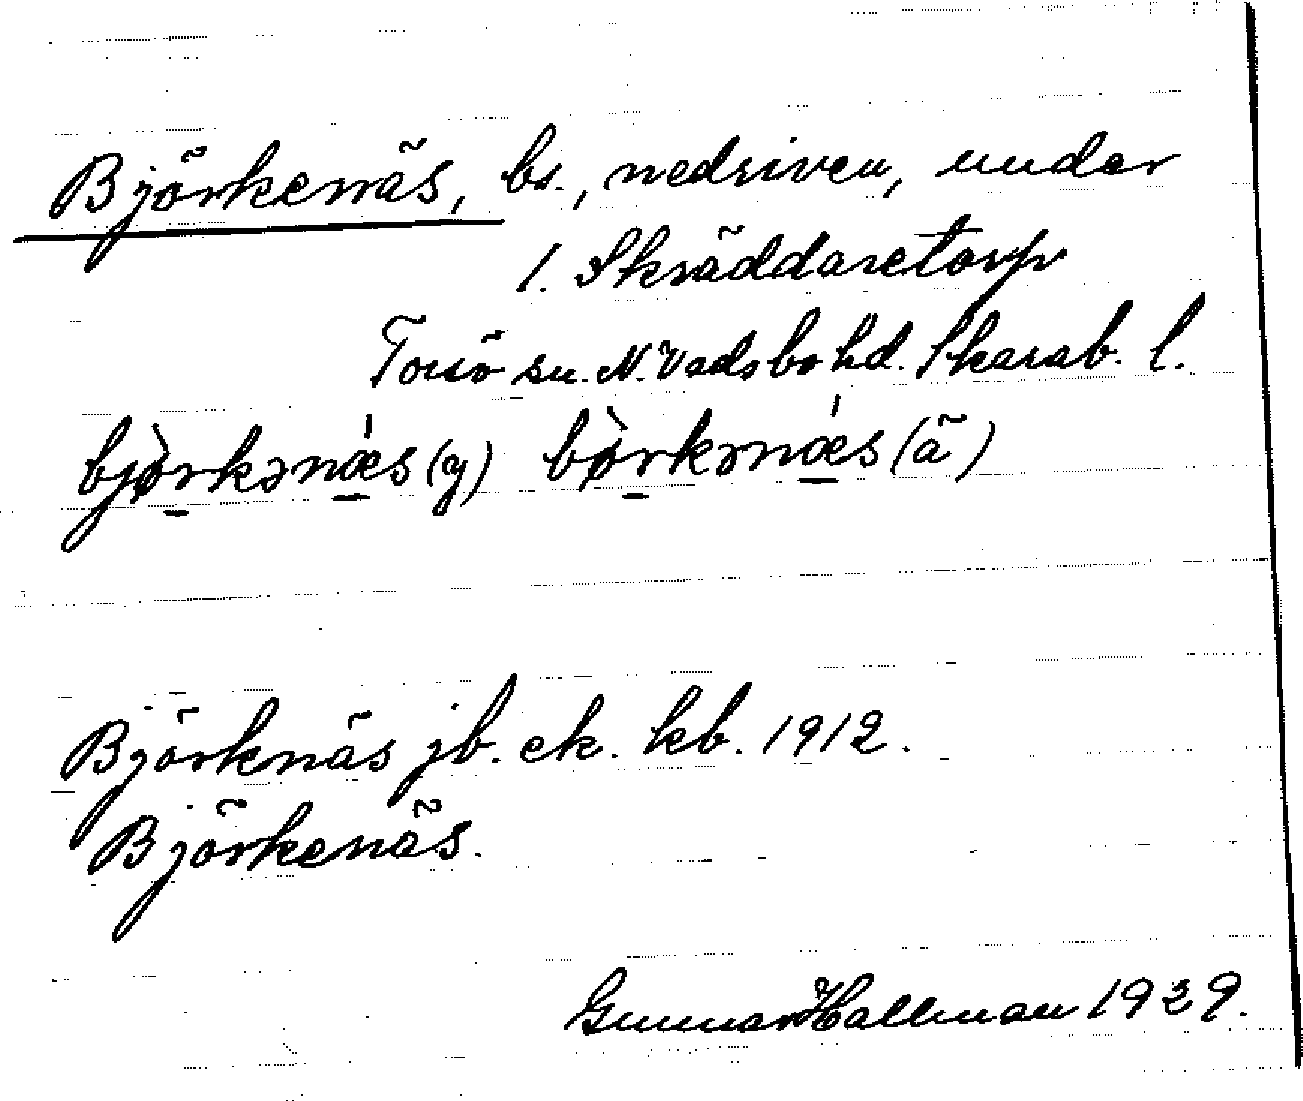 Björkenäs, bs., nedriven, under
1. Skräddaretorp
Torsö sn. N. Vadsbo hd. Skarab. l.
bjø̀rkənǽs (y) bø̀rkənǽs (ä)
Björknäs jb. ek. kb. 1912.
Björkenäs.
Gunnar Hallman 1939.